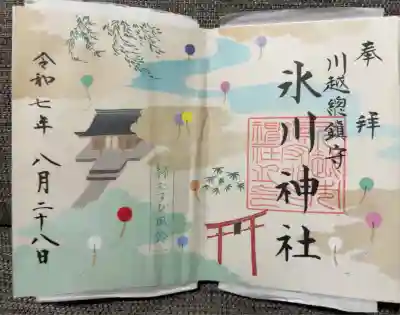 奉拝
川越總鎮守
氷川神社
縁むすび風鈴
令和七年 八月二十八日